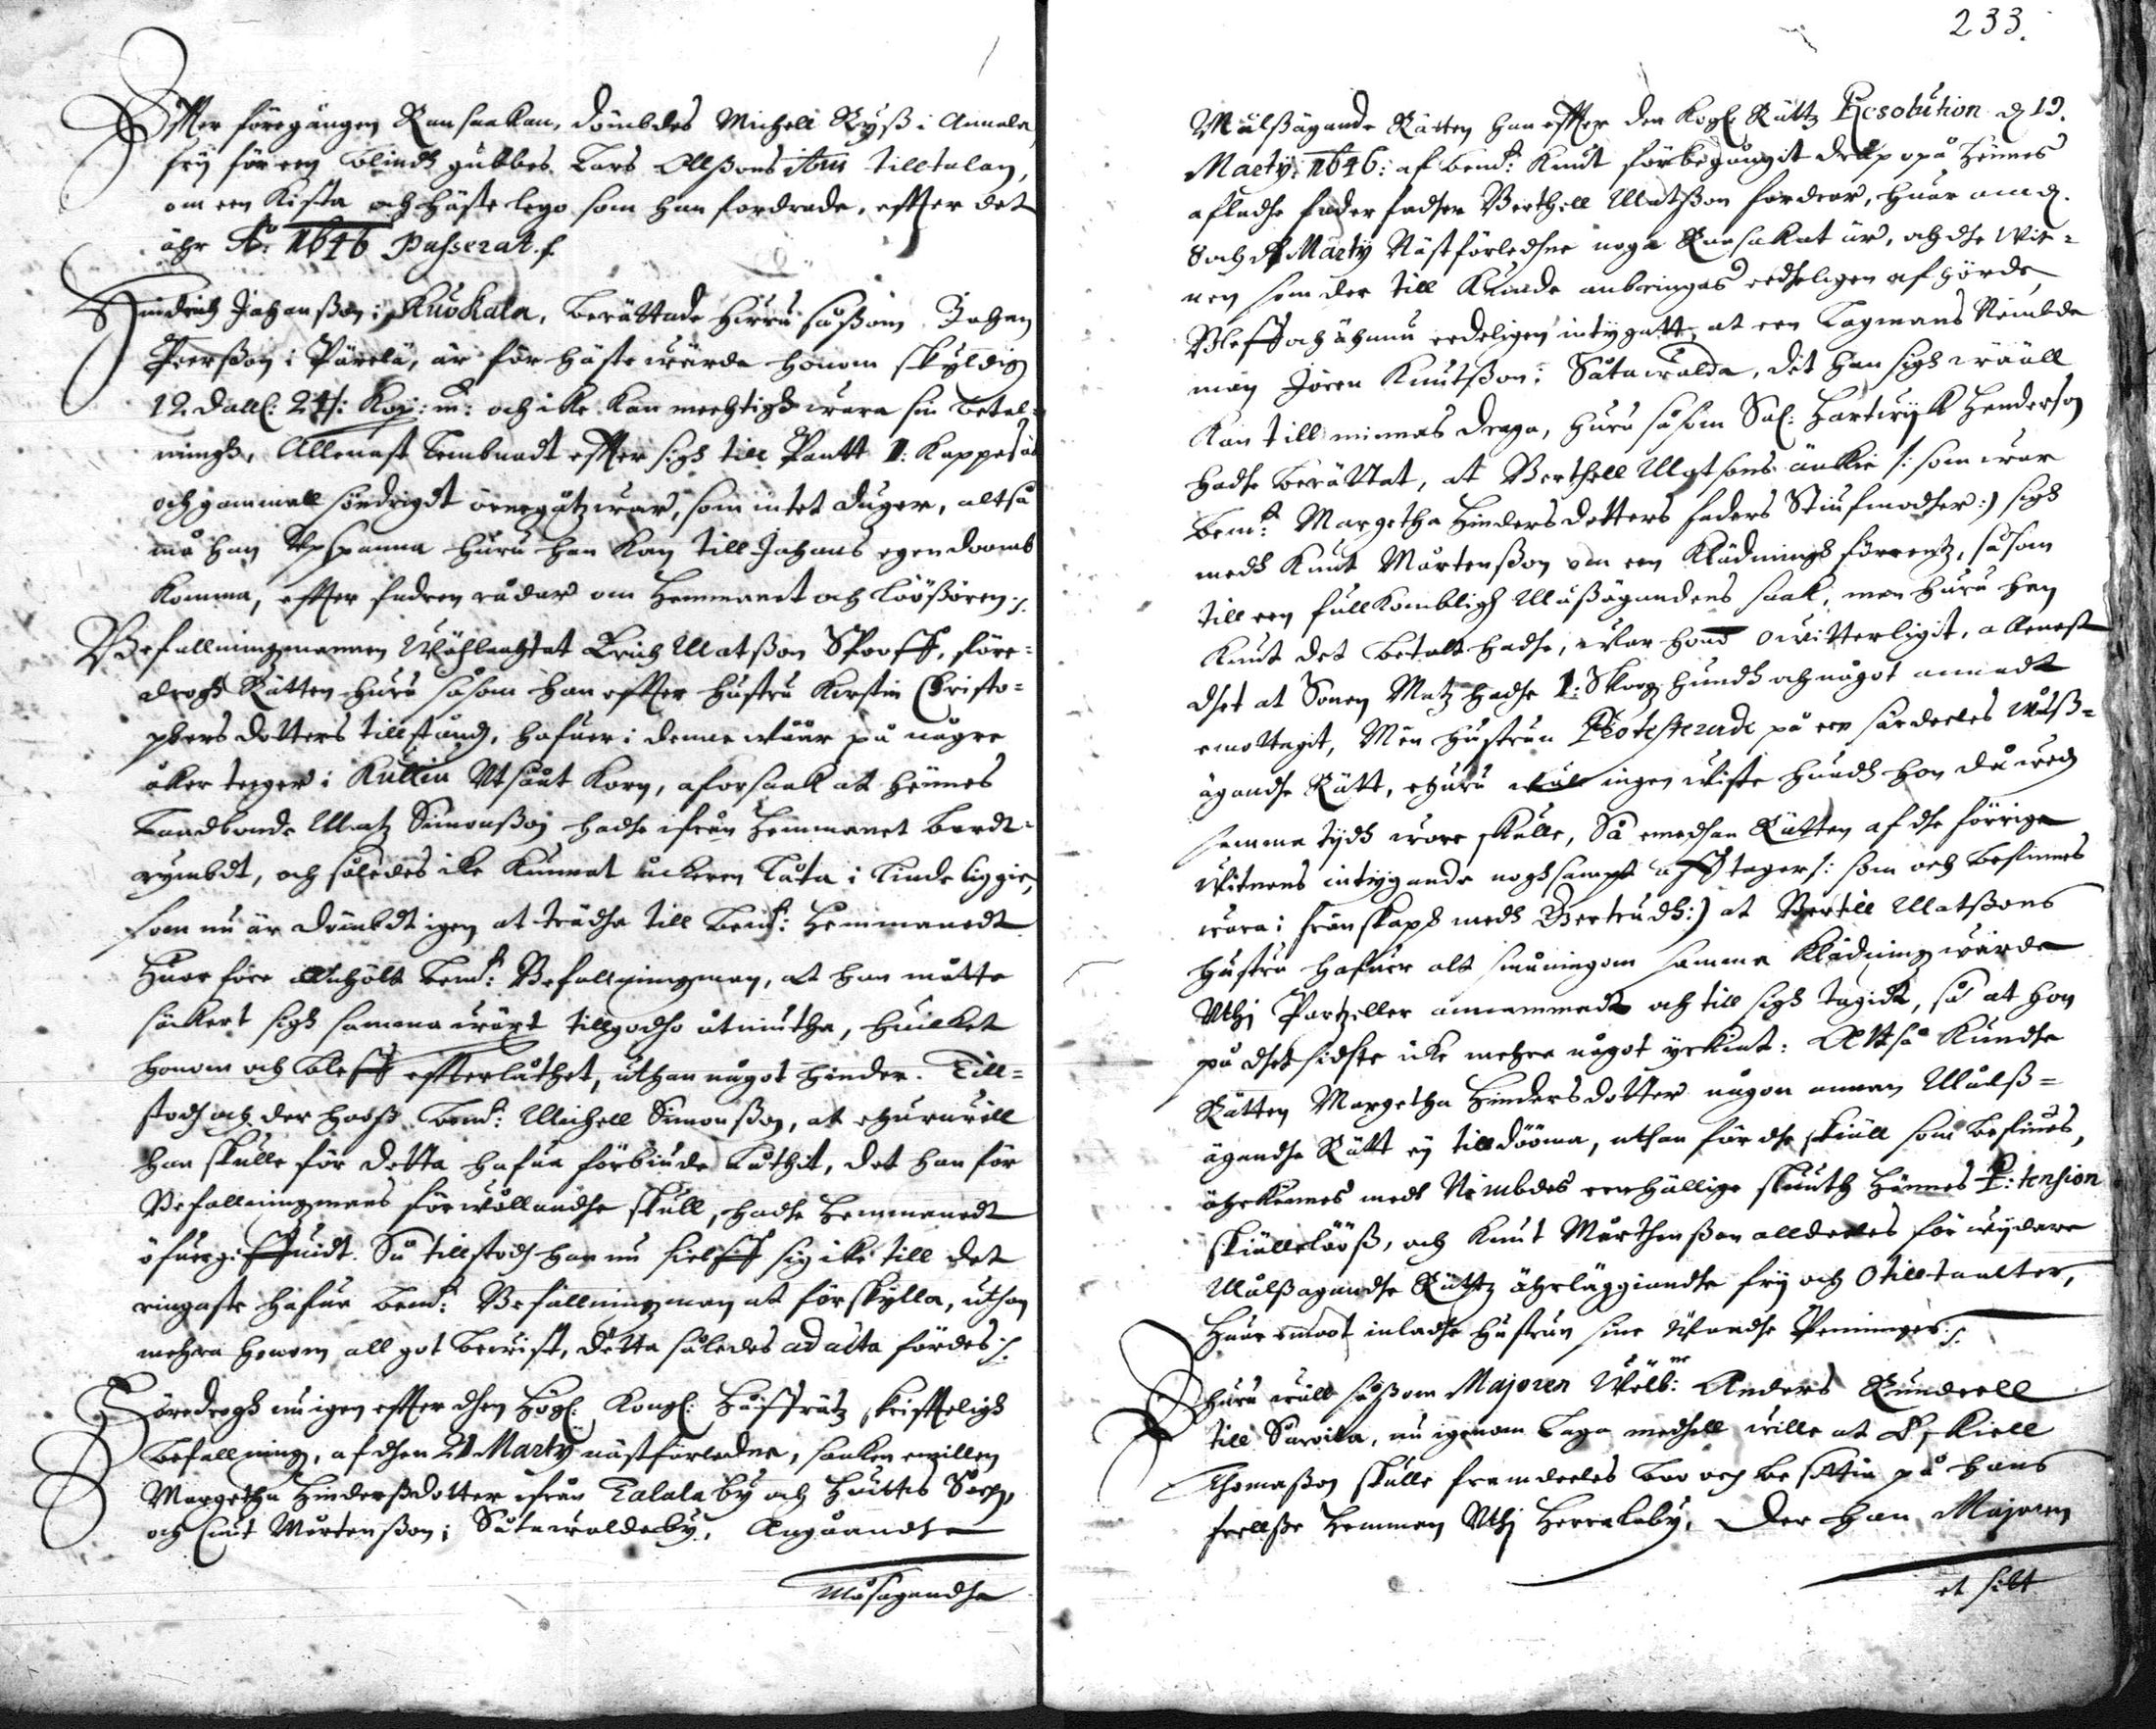 Effter föregången Ransaakan, dömbdes Michell Ryß i Annala
frij för een blindh gubbes Lars Ollßons tilltalan,
om een Kista och häste lego som han fordrade, effter det
ähr A:o 1646 Passerat./.
Hindrich Johanßon i Kuokala, berättade hurru såßom Johan
Peerßon i Pärelä, är för häste wärde honom skyldig
12 dall: 24 /: Kop: m: och icke kan mechtigh wara sin betal-
ningh, Allenast lembnadt effter sigh till Pantt 1: Kappesäk
och gammalt söndrigdt, som intet duger, altså
må han Vpspana huru han kan till Johans egendoomb
komma, effter fadren rådar om Hemmanet och löößören ./.
Befallningzmannen Wählachtat Erich Matßon Spooff, föré-
drogh Rätten huru såsom han effter hustru Kirstin Christo-
phers dotters tillstånd, hafuer i denne wåår på någre
åker teeger i Kullia Vtsått korn, aforsaak at hennes
Landbonde Matz Simonßon hadhe ifrån Hemmanet bordt-
rymbdt, och således icke kunnat åckeren låta i Linde liggie,
som nu är dömbdt igen at trädha till bem:te Hemmanedt
Huar före Anhölt bem:te Befallningzman, at han måtte
säckert sigh samma wäxt tillgodho åtniutha, huilket
honom och bleff effterlåthet, uthan något hinder. Till-
stodh och der hooß bem:te Michell Simonßon, at ehuruwäll
han skulle för detta hafua förbiude låthit, det han för
Befallningzmans förwållandhe skull, hadhe Hemmanedt
öfuergiffuidt. Så tillstodh han nu sielff sig icke till det
ringaste hafua bem:te Befallningzman at förskylla, uthan
mehra honom all got bewist, detta således ad acta fördes ./.
Företrogh nu igen effter dhen Högl: Kongl: Håffrätz skrifftelighe
befallning, af dhen 21 Marty nästförledne, saaken emillen
Margetha Hinderßdotter ifrån Talala by och Huittis Sochn,
och Cnut Mårtenßon i Såtawaldaby, Angåandhe
Måßagandhe

233.
Målßägande Rätten han effter den Kogl: Rättz Resolution d 19.
Marty: 1646: af bem:te Knut förbegångit dråp opå hennes
afledhe fader fadher Berthell Matßon fordrar, huar om d.
8 och 9 Marty Nästförledhne noga Ransakat är, och dhe Wit-
nen som der till Kunde anbringas eedheligen afhörde,
Bleff och ähnnu eedeligen intygatt, at een Lagmans Nembde
man Jören Knutßon i Såtawalda, det han sigh wääll
kan till minnes draga, huru såsom Sal: Hartwijk Henderson
hadhe berättat, at Berthell Matsons änkia /: som war
Bem:te Margetha Hindersdotters faders Stiufmodher :/ sigh
medh Knut Mårtenßon om een Klädningh förrent, såsom
till een fullkombligh Målßägandens saak, men huru han
Knut det betalt hadhe, war hono owitterligit, allenast
dhet at Sonen Matz hadhe 1: Skogz hundh och något annadt
emottagit, Men hustrun Protesterade på een särdeeles Målß-
ägandhe Rätt, ehuru ingen wiste huadh hon då wed
samma tydh wore skulle, Så emedhan Rätten af dhe förrige
witnens intygande noghsampt afftager /: som och befinnes
wara i frändskap medh Bertrudh :/ at Bertill Matßons
hustru hafuer alt småningom samma Klädning wärde
Vthi Partzeller annammadt och till sigh tagidt, så at hon
på dhet sidste icke mehra något yrkiat: Altså kundhe
Rätten Margetha Hindersdotter någon annan Målß-
ägandhe Rätt eij tilldööma, uthan för dhe skiäll som befinnes,
ährkennes medh Nembdes eenhällige skuuth hennes P:tension
skiälleläöß, och Knut Mårthenßon alldeeles för wijdare
Målßägandhe Rättz ährläggiandhe frij och Otilltaalter,
Huar emoot inladhe hustrun sine Wandhe Penninger ./.
Ehuru wäll såßom Majoren Wälb:ne Anders Rundeell
till Surwila, nu igenom Laga medhell wille at Eskiell
Thomaßon skulle framdeeles boo och besittia på hans
frellße Hemman Vthi Herralaby, Der han Majoren
et silt